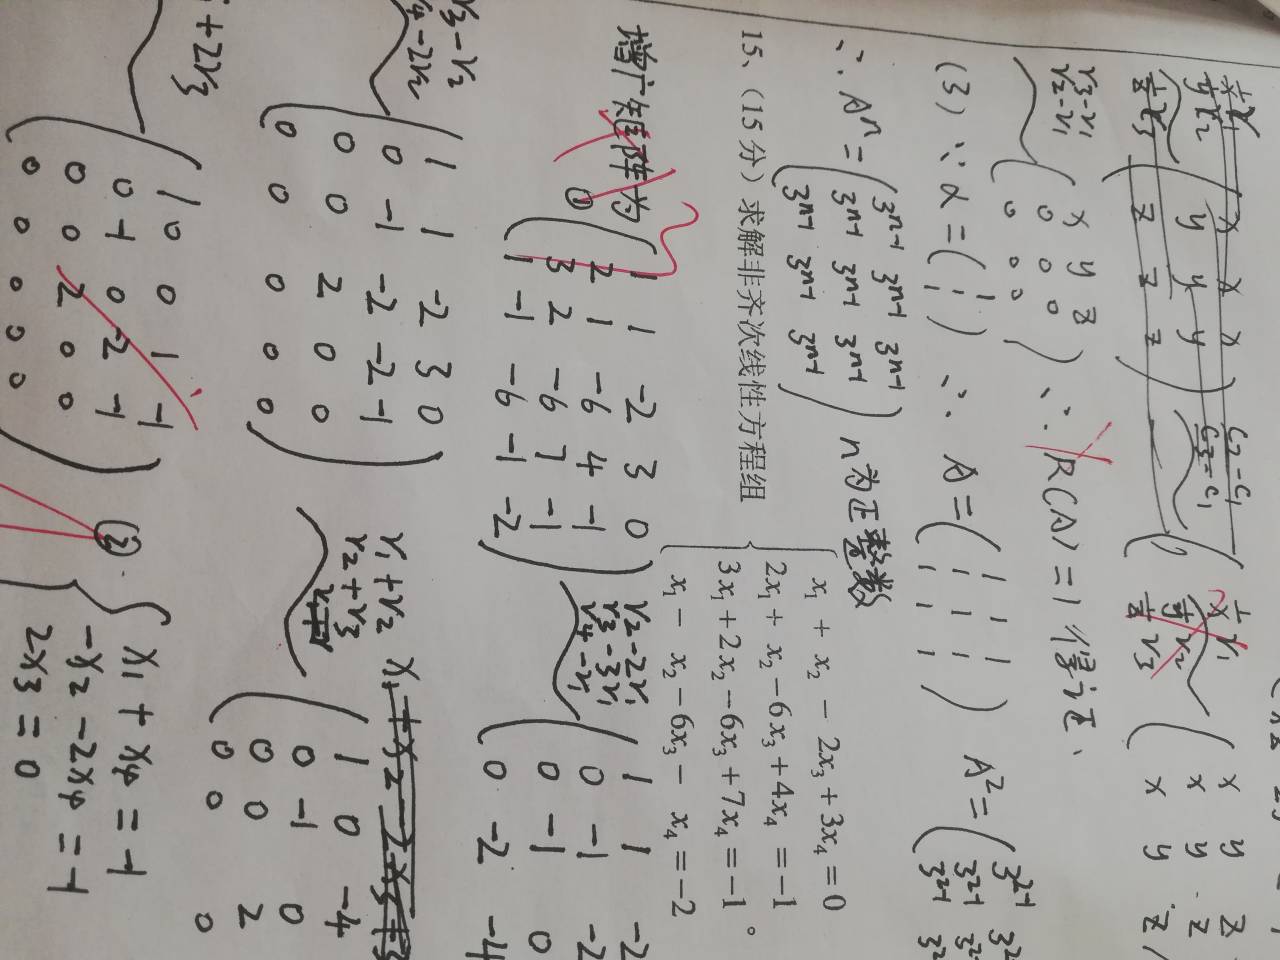 1/x r₁ ( x x x ) c₂-c₁ ( 1/x r₁ ( x y z
1/y r₂ ( y y y ) c₃-c₁ ( 1/y r₂ ( x y z
1/z r₃ ( z z z ) 1/z r₃ ( x y z
r₃-r₁ ( x y z )
r₂-r₁ ( 0 0 0 ) ∴ R(A)=1 得证.
( 0 0 0 )
(3) ∵ α = ( 1 1 1 ) ∴ A = ( 1 1 1
1 1 1
1 1 1 ) A² = ( 3²⁻¹
3²⁻¹
3²⁻¹
∴ Aⁿ = ( 3ⁿ⁻¹ 3ⁿ⁻¹ 3ⁿ⁻¹
3ⁿ⁻¹ 3ⁿ⁻¹ 3ⁿ⁻¹
3ⁿ⁻¹ 3ⁿ⁻¹ 3ⁿ⁻¹ ) n为正整数
15、（15 分）求解非齐次线性方程组
x₁ + x₂ - 2x₃ + 3x₄ = 0
2x₁ + x₂ - 6x₃ + 4x₄ = -1
3x₁ + 2x₂ - 6x₃ + 7x₄ = -1
x₁ - x₂ - 6x₃ - x₄ = -2 。
增广矩阵为
① ( 1 1 -2 3 0
2 1 -6 4 -1
3 2 -6 7 -1
1 -1 -6 -1 -2 )
r₂-2r₁
r₃-3r₁
r₄-r₁
( 1 1 -2
0 -1 -2
0 -1 0
0 -2 -4
r₃-r₂
r₄-2r₂
( 1 1 -2 3 0
0 -1 -2 -2 -1
0 0 2 0 0
0 0 0 0 0 )
x₁+x₂-2x₃+3
r₁+r₂
r₂+r₃
( 1 0 -4
0 -1 0
0 0 2
0 0 0
+2r₃
( 1 0 0 1 -1
0 -1 0 -2 -1
0 0 2 0 0
0 0 0 0 0 )
② { x₁ + x₄ = -1
-x₂ - 2x₄ = -1
2x₃ = 0